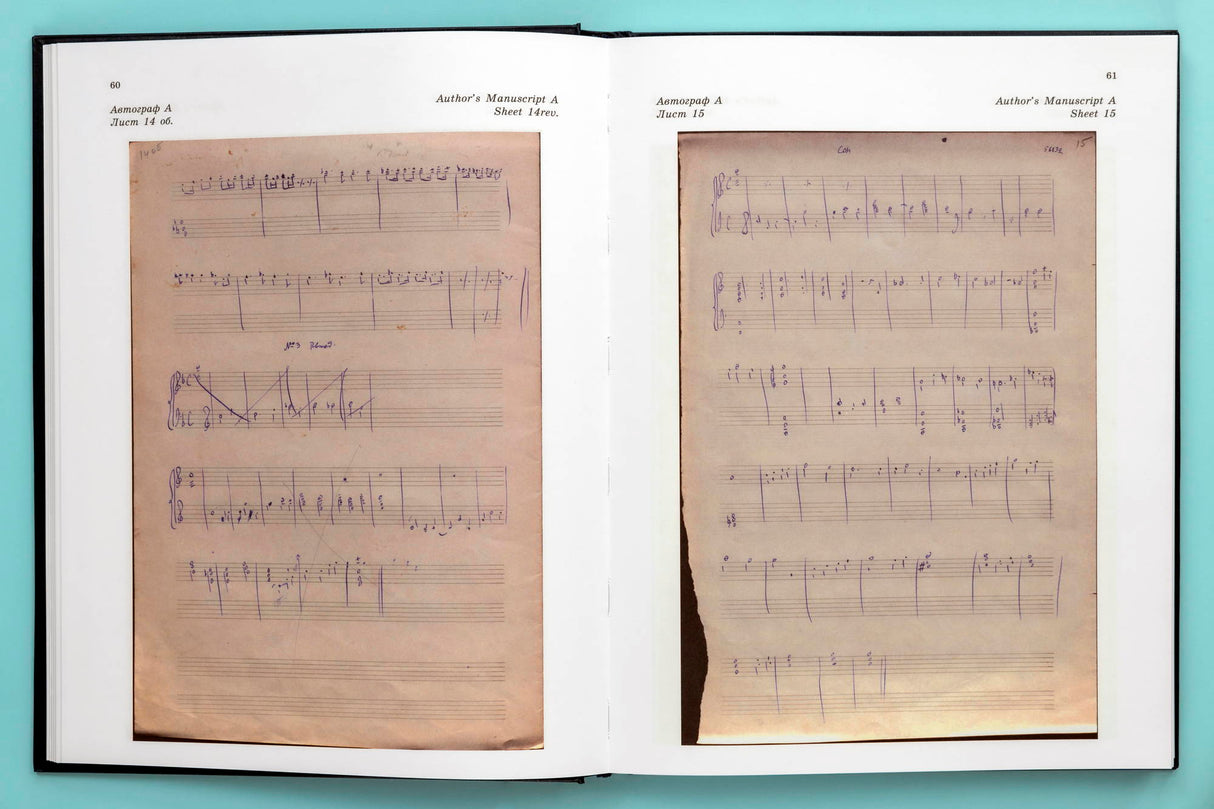 60
Автограф А
Лист 14 об.
Author's Manuscript A
Sheet 14rev.
14 об
№3
61
Автограф А
Лист 15
Author's Manuscript A
Sheet 15
15